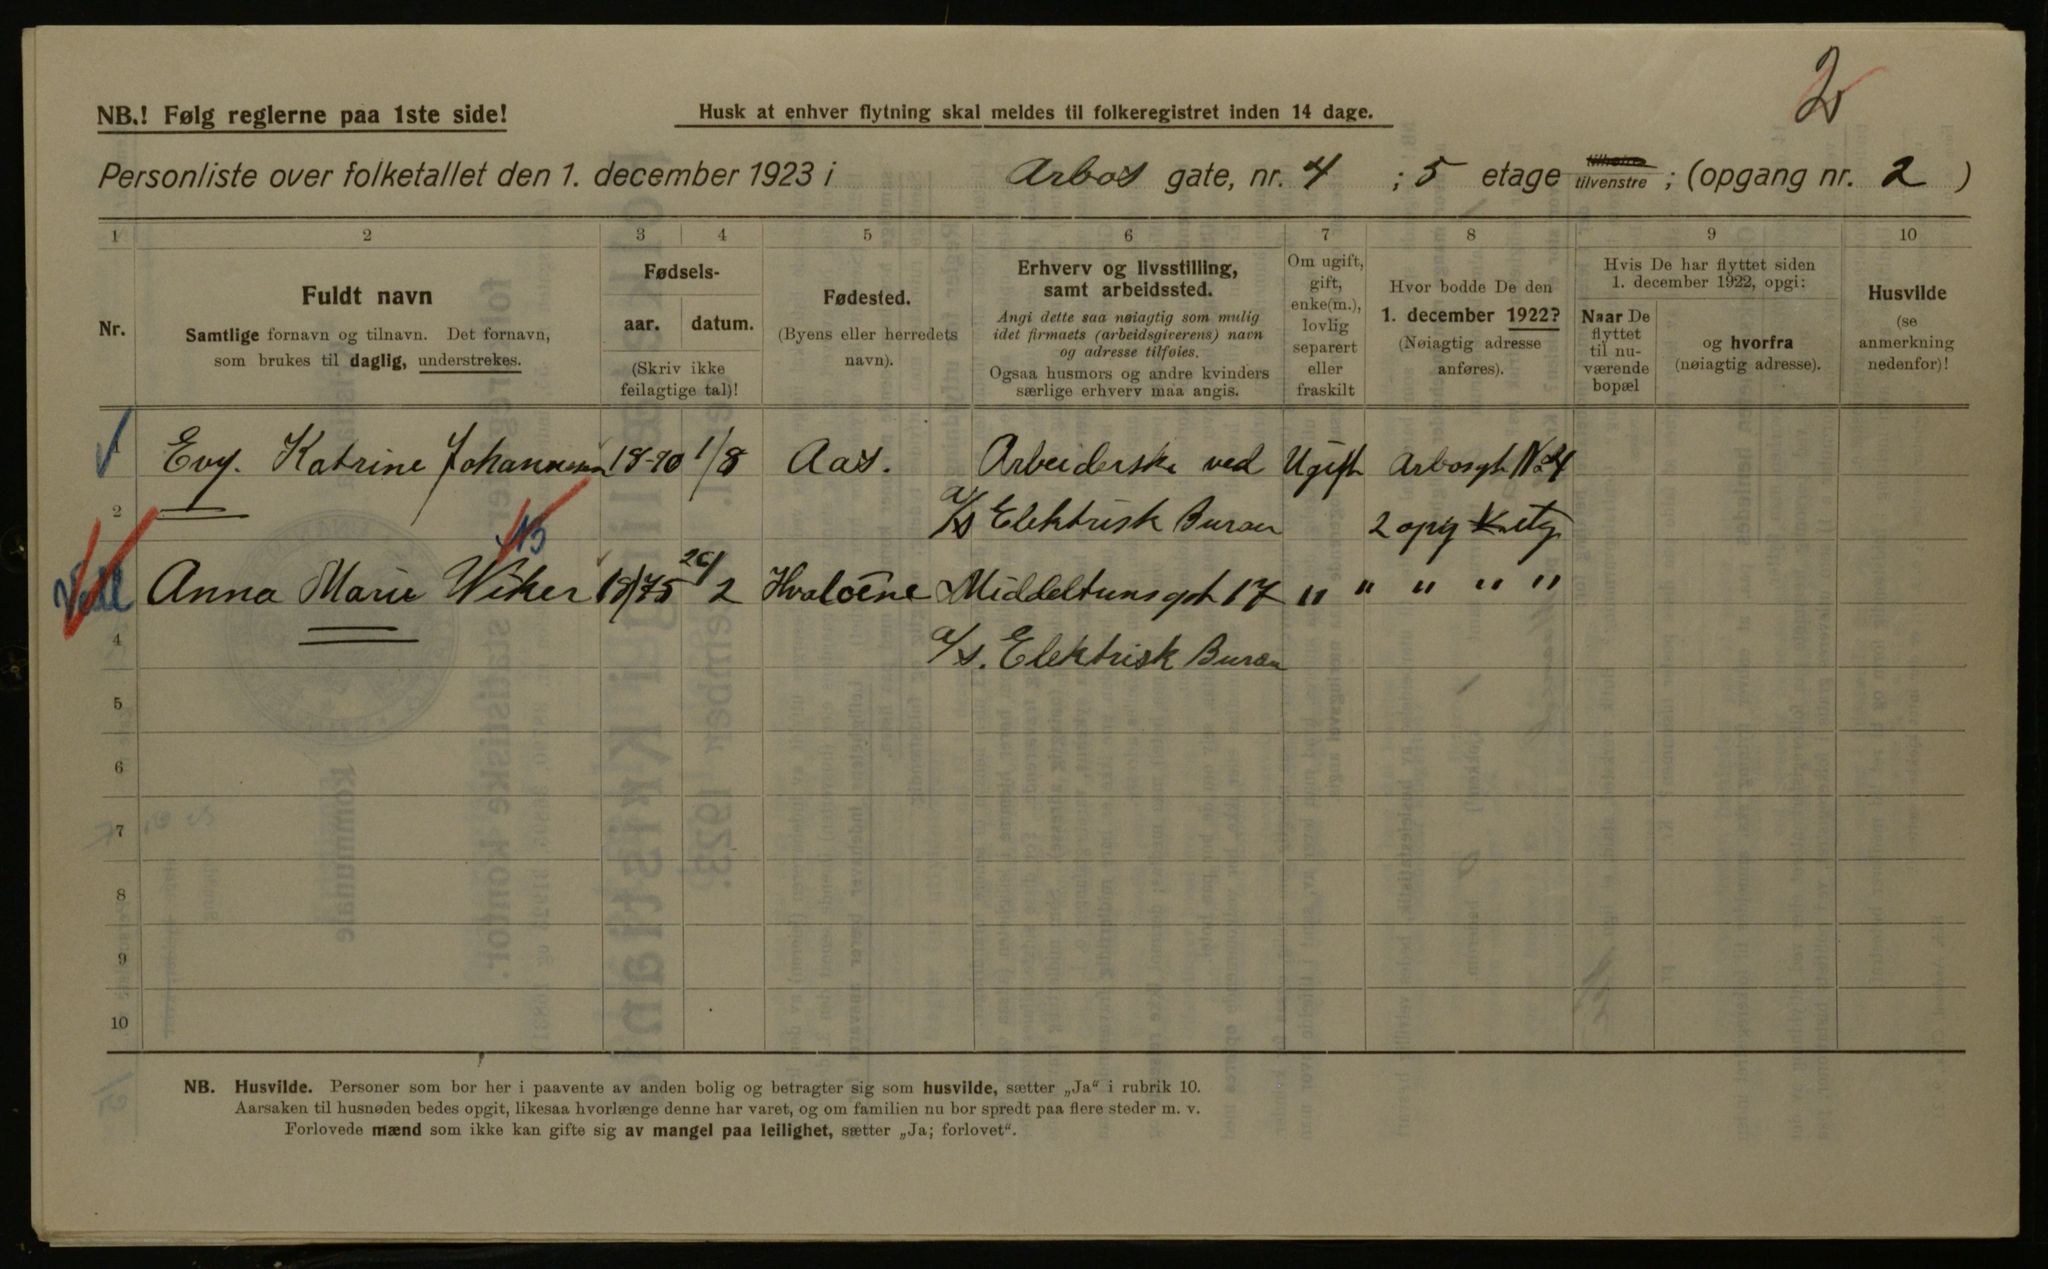 2
NB.! Følg reglerne paa 1ste side!
Husk at enhver flytning skal meldes til folkeregistret inden 14 dage.
Personliste over folketallet den 1. december 1923 i Arbos gate, nr. 4 ; 5 etage tilhøire tilvenstre ; (opgang nr. 2 )
1 2 3 4 5 6 7 8 9 10
Nr.
Fuldt navn
Samtlige fornavn og tilnavn. Det fornavn,
som brukes til daglig, understrekes.
Fødsels-
aar. datum.
(Skriv ikke
feilagtige tal)!
Fødested.
(Byens eller herredets
navn).
Erhverv og livsstilling,
samt arbeidssted.
Angi dette saa nøiagtig som mulig
idet firmaets (arbeidsgiverens) navn
og adresse tilføies.
Ogsaa husmors og andre kvinders
særlige erhverv maa angis.
Om ugift,
gift,
enke(m.),
lovlig
separert
eller
fraskilt
Hvor bodde De den
1. december 1922?
(Nøiagtig adresse
anføres).
Hvis De har flyttet siden
1. december 1922, opgi:
Naar De
flyttet
til nu-
værende
bopæl
og hvorfra
(nøiagtig adresse).
Husvilde
(se
anmerkning
nedenfor)!
1 Evy. Katrine Johannesen 18-90 1/8 Aas. Arbeiderske ved Ugift Arbosgt No 4
2 a/s Elektrisk Burau 2 opg V etg
Anna Marie Wiker 18/75 26/2 Hvaløene Middeltunsgt 17 " " " " "
4 a/s. Elektrisk Burau
5
6
7
8
9
10
NB. Husvilde. Personer som bor her i paavente av anden bolig og betragter sig som husvilde, sætter „Ja“ i rubrik 10.
Aarsaken til husnøden bedes opgit, likesaa hvorlænge denne har varet, og om familien nu bor spredt paa flere steder m. v.
Forlovede mænd som ikke kan gifte sig av mangel paa leilighet, sætter „Ja; forlovet“.